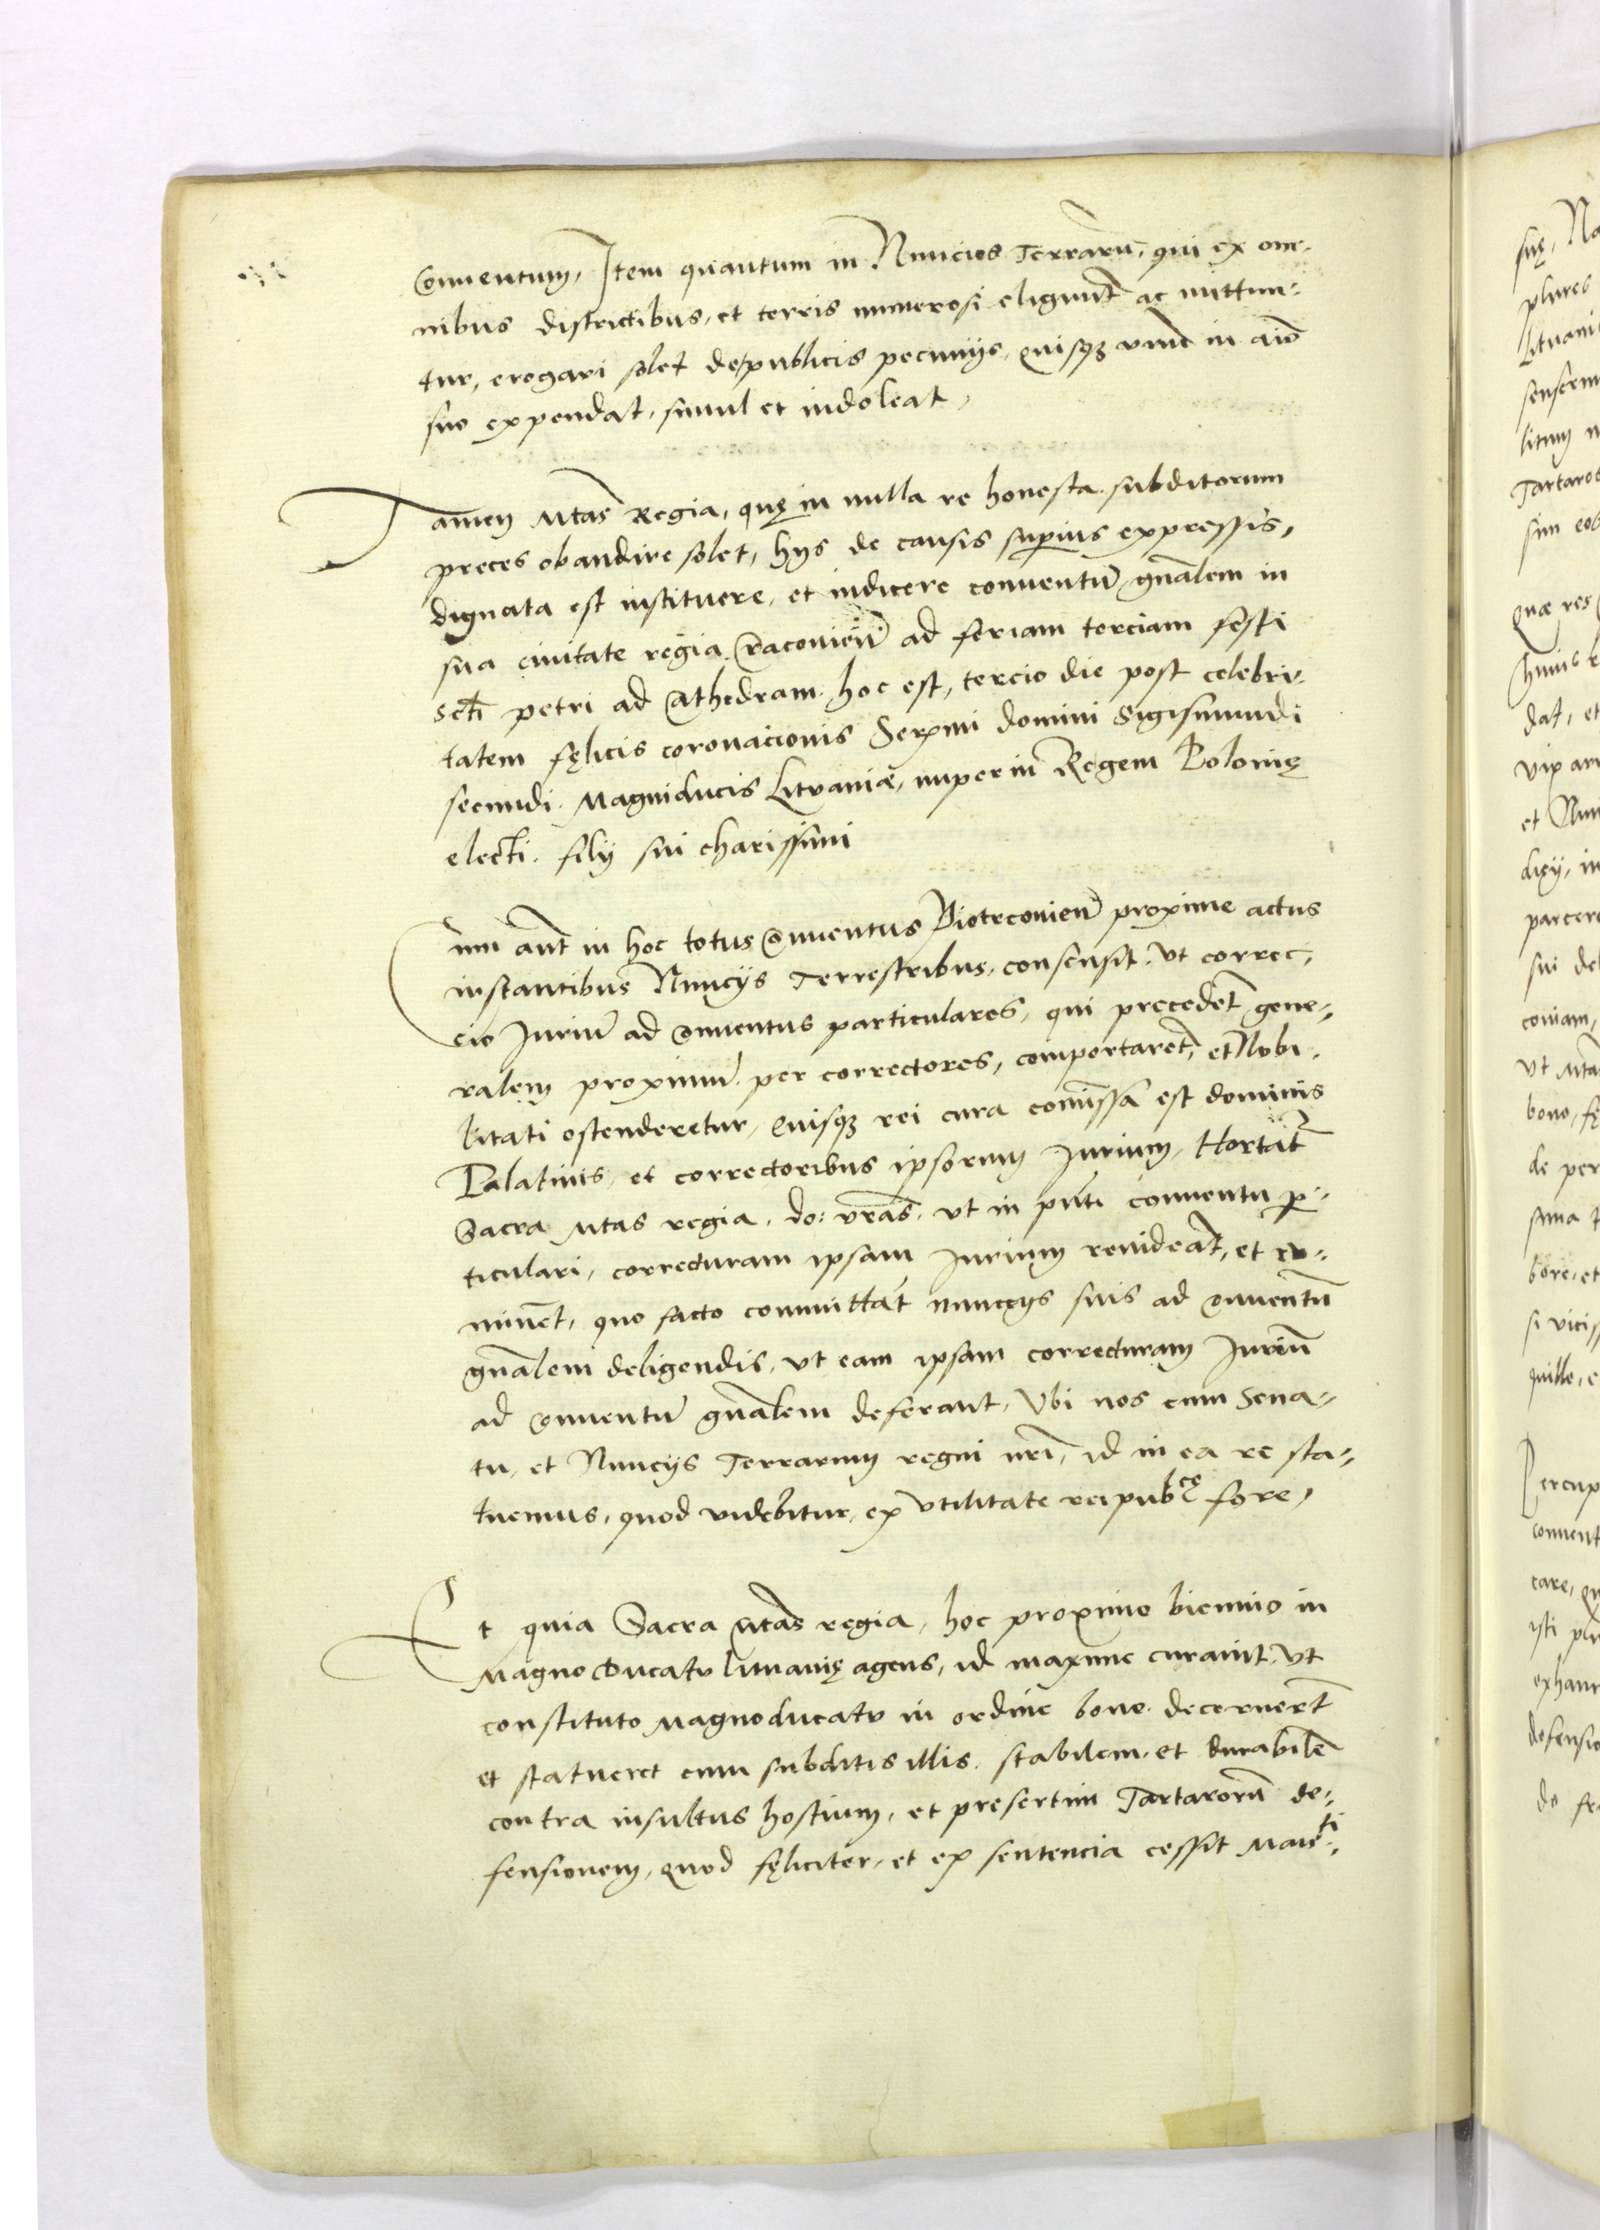 Conuentum, Item quantum in Nuncios Terrarū, qui ex om-
nibus districtibus, et terris numerosi eligunt̄ ac mittun-
tur, erogari solet de publicis pecunijs, quisq; vnūc in aīo
suo expendat, simul et indoleat,
Tamen Mtas̄ Regia, quę in nulla re honesta subditorum
preces obaudire solet, hijs de causis superius expressis,
dignata est instituere, et indicere conuentū gn̄alem in
sua ciuitate regia Craconien̄ ad feriam terciam festi
scti petri ad Cathedram. hoc est, tercio die post celebri-
tatem fęlicis coronacionis Serxmi domini Sigismundi
secundi. Magniducis Lituaniæ, nuper in Regem Polonię
electi. filij sui charissimi
Cum aūt in hoc totus Conuentus Piotrconien̄ proxime actus
instantibus Nuncijs Terrestribus, consensit, vt correc-
cio Juriū ad conuentus particulares, qui precedent̄ gene-
ralem proximū. per correctores, comportaret̄, et Nobi-
litati ostenderetur, Cuisq; rei cura comissa est dominis
Palatinis, et correctoribus ipsorum Jurium, Hortat̄
Sacra Mtas regia. do: vras̄. vt in pnti conuentu par-
ticulari, correcturam ipsam Jurium reuideāt, et ru-
minent, quo facto committāt nuncijs suis ad conuentū
gn̄alem deligendis, vt eam ipsam correcturam Juriū
ad conuentū gn̄alem deferant, Vbi nos cum Sena-
tu, et Nuncijs Terrarum regni nrī, id in ea re sta-
tuemus, quod videbitur, ex vtilitate reipubcę fore,
Et quia Sacra Mtas̄ regia, hoc proximo biennio in
Magno Ducatu lituanię agens, id maxime curauit, vt
constituto Magnoducatu in ordine bono. decerneret̄
et statueret cum subditis illis. stabilem. et durabilē
contra insultus hostium, et presertim Tartarorū de-
fensionem, quod fęliciter, et ex sentencia cessit Maieti.